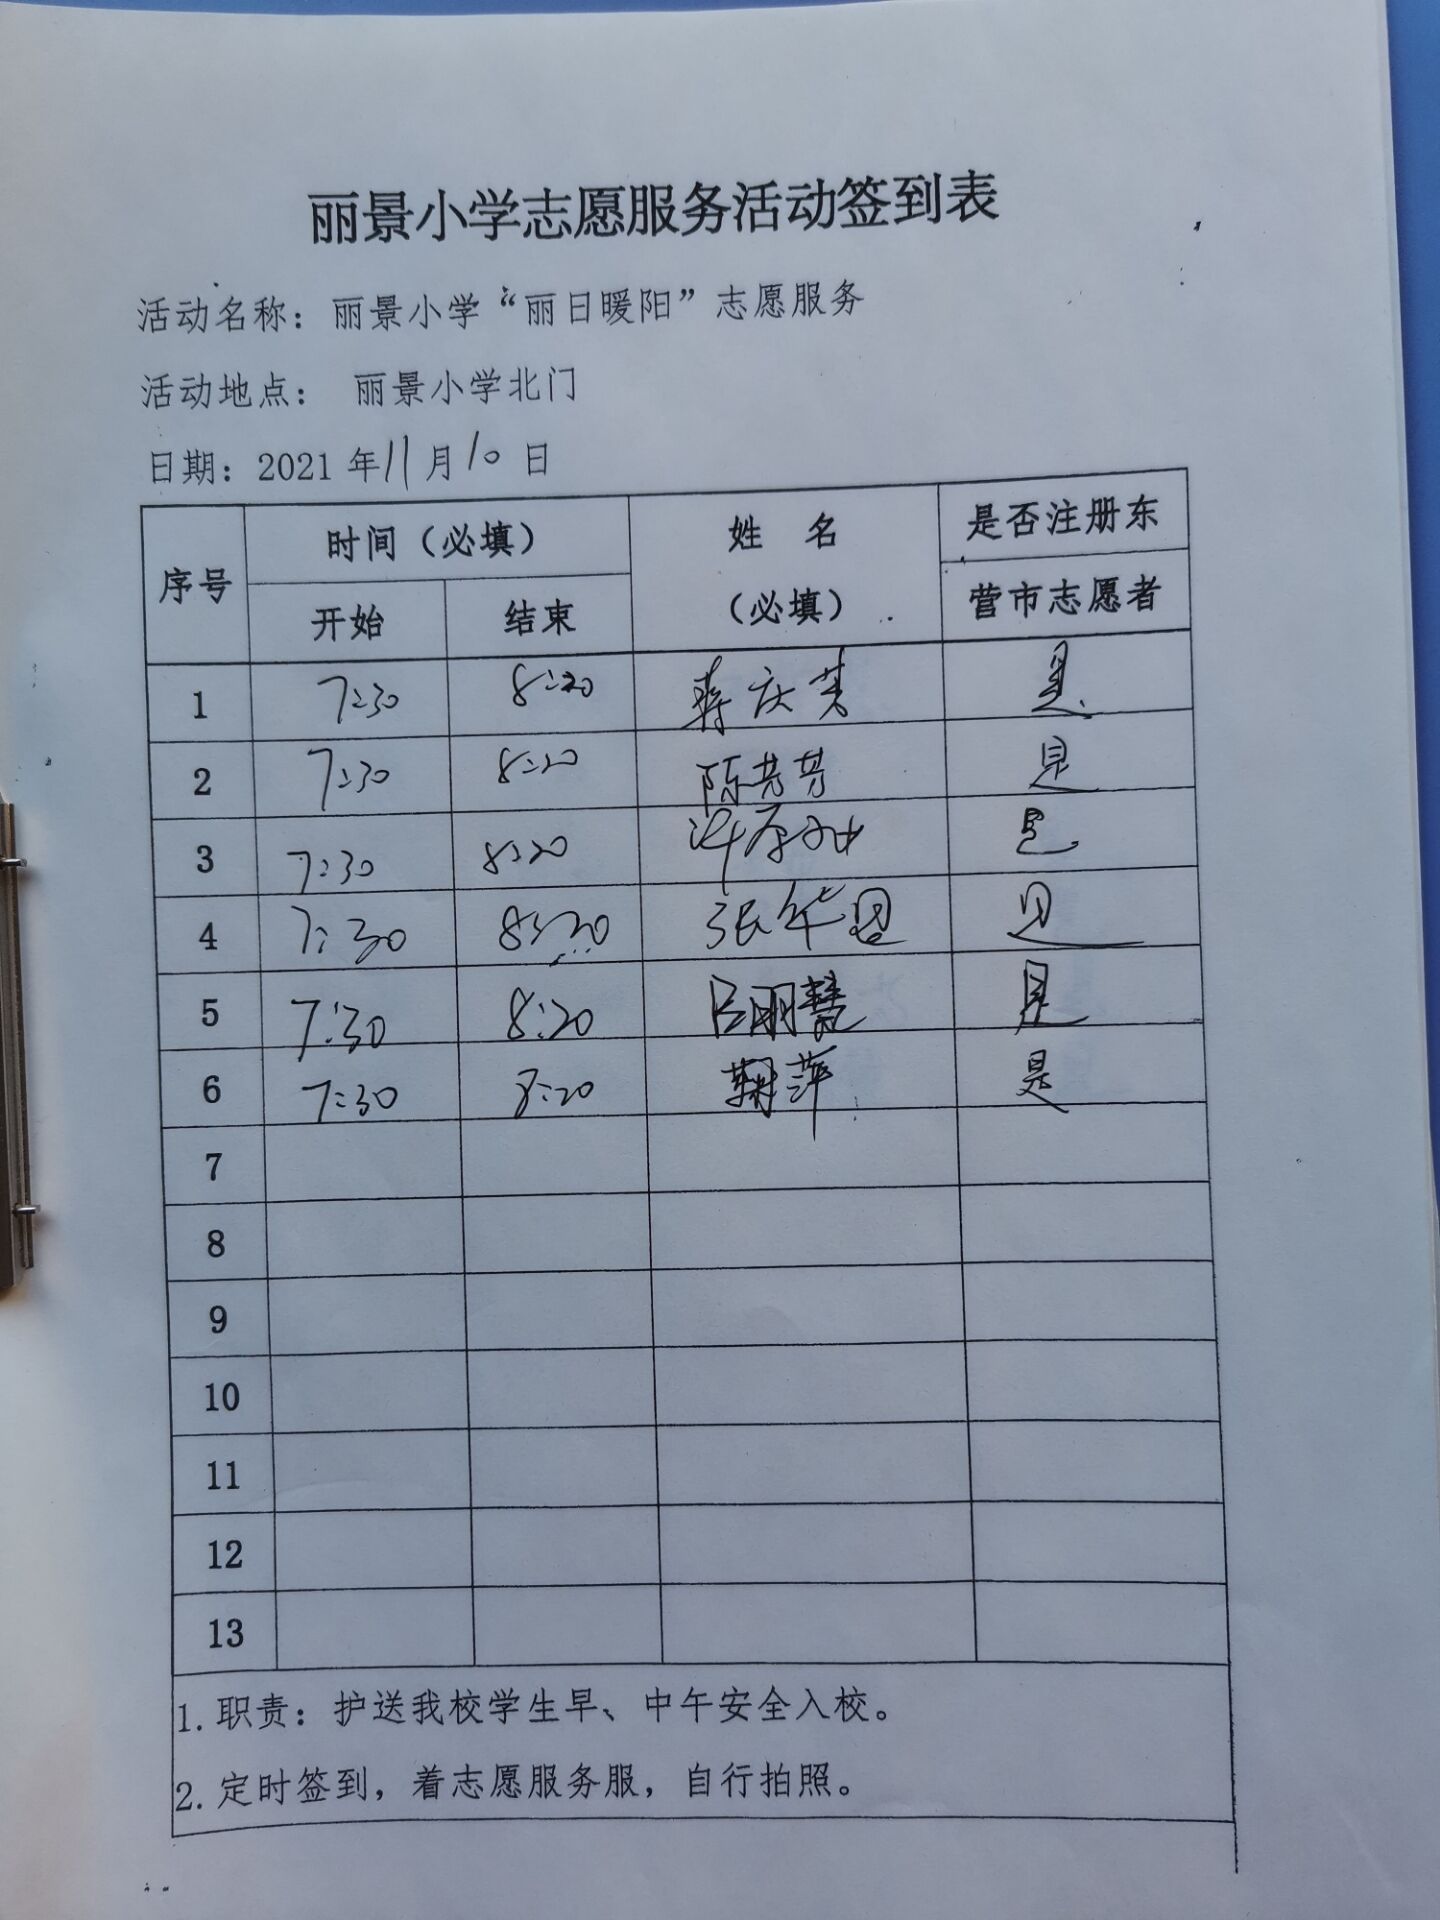 丽景小学志愿服务活动签到表
活动名称：丽景小学“丽日暖阳”志愿服务
活动地点： 丽景小学北门
日期：2021 年 11 月 10 日
序号 时间（必填） 姓 名 是否注册东
开始 结束 （必填） 营市志愿者
1 7:30 8:20 蒋庆 是
2 7:30 8:20 陈芳芳 是
3 7:30 8:20 是
4 7:30 8:20 张华 是
5 7:30 8:20 吕丽慧 是
6 7:30 8:20 鞠萍 是
7
8
9
10
11
12
13
1. 职责：护送我校学生早、中午安全入校。
2. 定时签到，着志愿服务服，自行拍照。